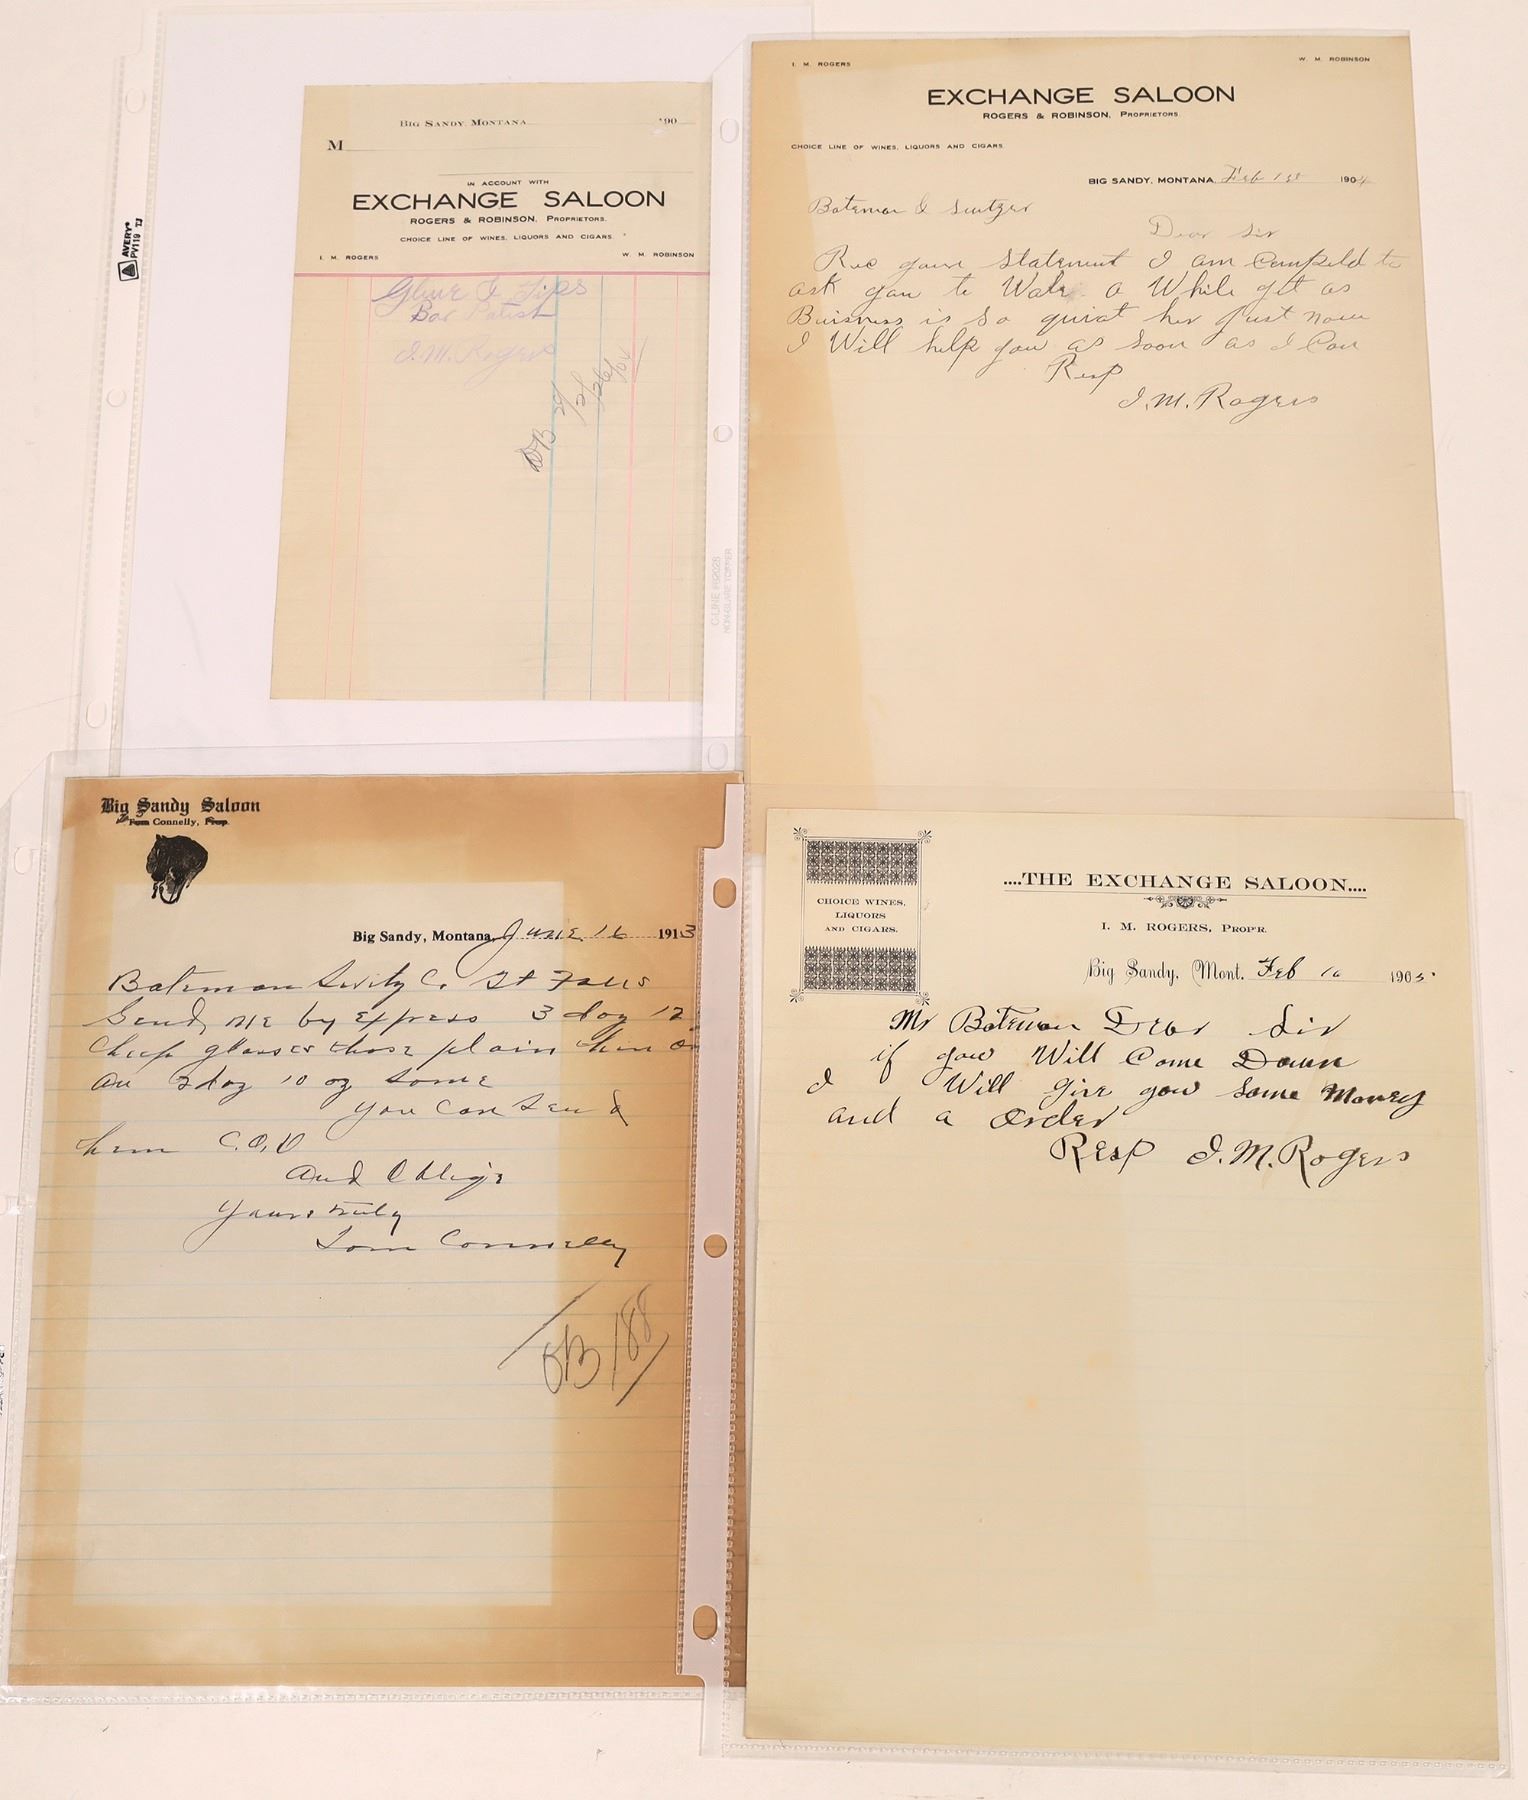 BIG SANDY, MONTANA 190
M
IN ACCOUNT WITH
EXCHANGE SALOON
ROGERS & ROBINSON, PROPRIETORS.
CHOICE LINE OF WINES, LIQUORS AND CIGARS.
I. M. ROGERS W. M. ROBINSON
Bar
I.M. Rogers
I. M. ROGERS W. M. ROBINSON
EXCHANGE SALOON
ROGERS & ROBINSON, PROPRIETORS
CHOICE LINE OF WINES, LIQUORS AND CIGARS
BIG SANDY, MONTANA, Feb 1st 1904
Bateman &
Dear Sir
Rec your Statement I am Compeld to
ask you to Wate a While yet as
Buisness is so quiat her Just now
I Will help you as soon as I Can
Resp
I.M. Rogers
AVERY®
PV119
C-LINE
Big Sandy Saloon
Tom Connelly, Prop.
Big Sandy, Montana, June 16 1913
Bateman Co Gt Falls
Send me by Express 3 doz 12
Cheep glasses those plain thin
3 doz 10 oz some
you can send
them C.O.D
and Oblige
yours truly
Tom Connelly
188
CHOICE WINES,
LIQUORS
AND CIGARS.
....THE EXCHANGE SALOON....
I. M. ROGERS, PROP'R.
Big Sandy, Mont. Feb 10 1905
Mr Bateman Dear Sir
if you Will Come Down
I Will give you some Money
and a Order
Resp I.M. Rogers